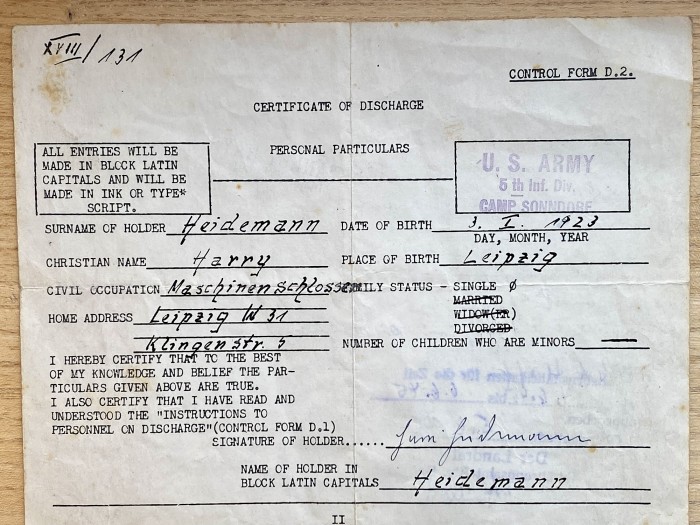 XVIII/131
CONTROL FORM D.2.
CERTIFICATE OF DISCHARGE
ALL ENTRIES WILL BE
MADE IN BLOCK LATIN
CAPITALS AND WILL BE
MADE IN INK OR TYPE*
SCRIPT.
PERSONAL PARTICULARS
U. S. ARMY
5 th Inf. Div.
CAMP SONNDORF
SURNAME OF HOLDER Heidemann DATE OF BIRTH 3. I. 1923
DAY, MONTH, YEAR
CHRISTIAN NAME Harry PLACE OF BIRTH Leipzig
CIVIL OCCUPATION Maschinenschlosser FAMILY STATUS - SINGLE Ø
MARRIED
WIDOW(ER)
DIVORCED
HOME ADDRESS Leipzig W 31
Klingenstr. 5 NUMBER OF CHILDREN WHO ARE MINORS —
I HEREBY CERTIFY THAT TO THE BEST
OF MY KNOWLEDGE AND BELIEF THE PAR-
TICULARS GIVEN ABOVE ARE TRUE.
I ALSO CERTIFY THAT I HAVE READ AND
UNDERSTOOD THE "INSTRUCTIONS TO
PERSONNEL ON DISCHARGE"(CONTROL FORM D.1)
SIGNATURE OF HOLDER......
NAME OF HOLDER IN
BLOCK LATIN CAPITALS Heidemann
II